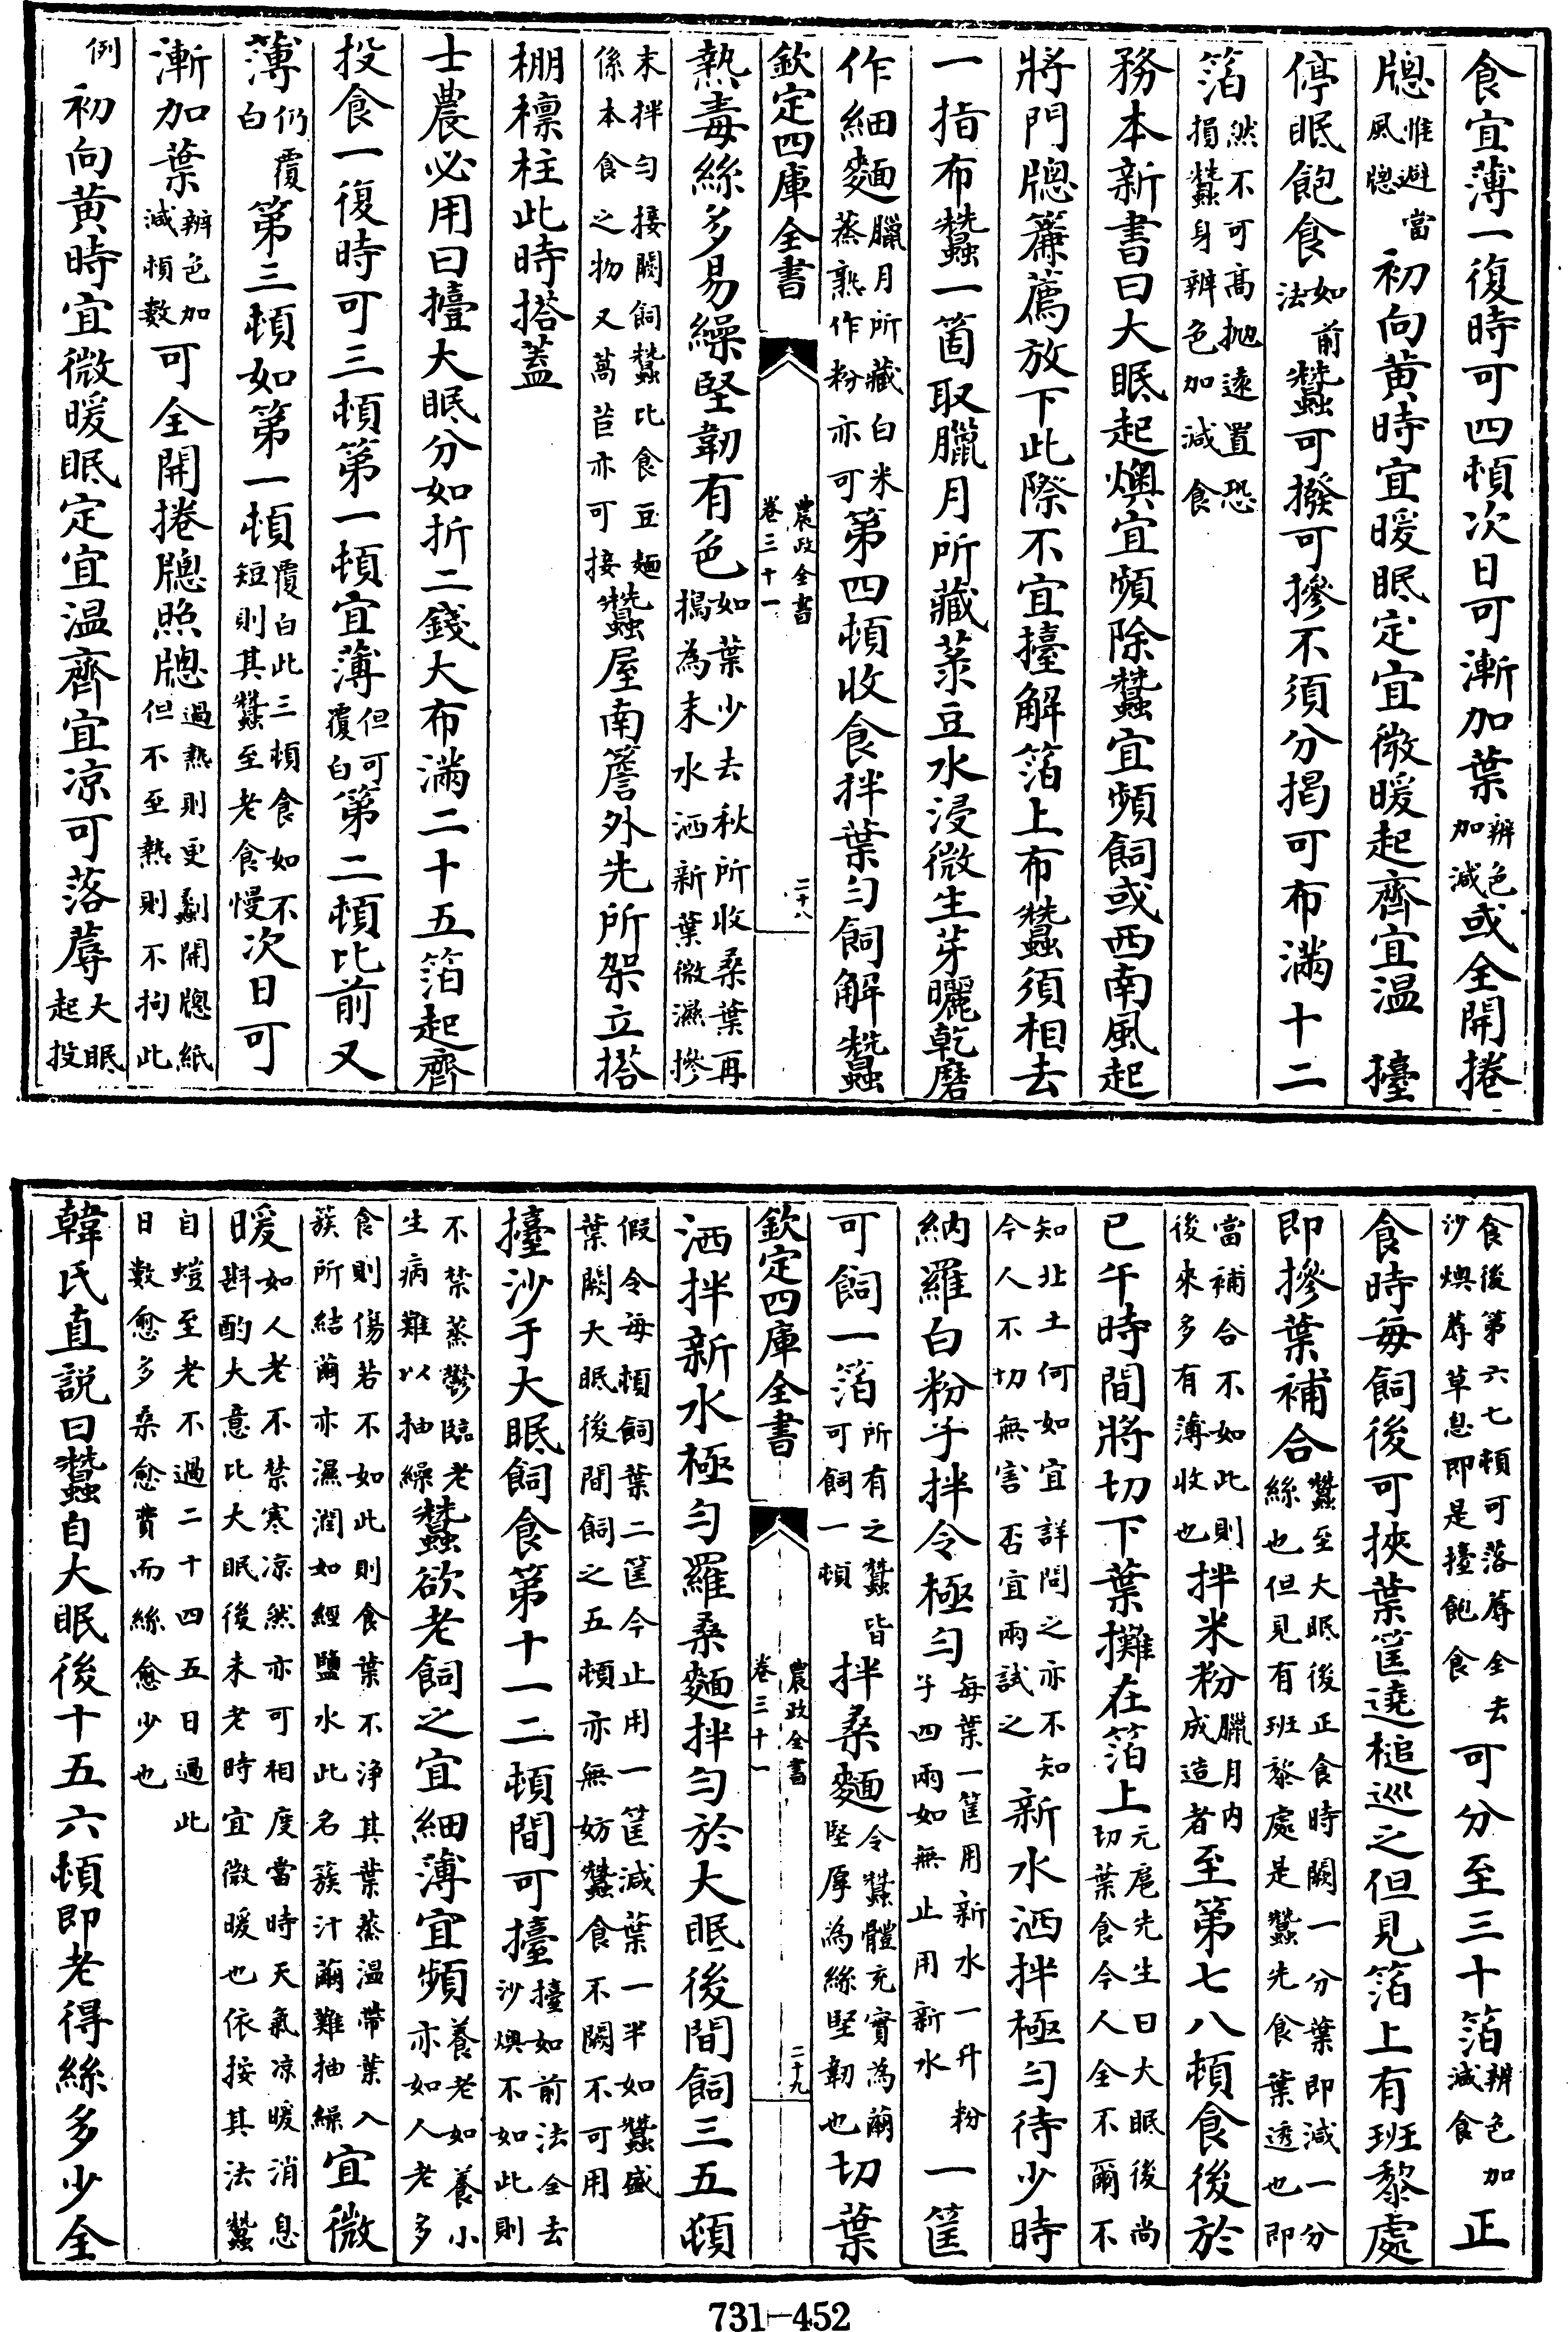 食宜薄一復時可四頓次日可漸加葉辨色加減或全開捲
牕惟避當風牕初向黄時宜暖眠定宜微暖起齊宜温 擡
停眠飽食如前法蠶可撥可摻不須分掲可布滿十二
箔然不可高抛遠置恐損蠶身辨色加減食
務本新書曰大眠起燠宜頻除蠶宜頻飼或西南風起
將門牕簾薦放下此際不宜擡解箔上布蠶須相去
一指布蠶一箇取臘月所藏菉豆水浸微生芽曬乾磨
作細麵臘月所藏白米蒸熟作粉亦可第四頓收食拌葉匀飼解蠶
欽定四庫全書 農政全書卷三十一 二十八
熱毒絲多易繰堅韌有色如葉少去秋所收桑葉再搗為末水洒新葉微濕摻
末拌匀接闕飼蠶比食豆麵係本食之物又萵苣亦可接蠶屋南簷外先所架立搭
棚檁柱此時搭蓋
士農必用曰擡大眠分如折二錢大布滿二十五箔起齊
投食一復時可三頓第一頓宜薄但可覆白第二頓比前又
薄仍覆白第三頓如第一頓覆白此三頓食如不短則其蠶至老食慢次日可
漸加葉辨色加減頓數可全開捲牕照牕過熱則更劃開牕紙但不至熱則不拘此
例初向黄時宜微暖眠定宜温齊宜凉可落蓐大眠起投
食後第六七頓可落蓐全去沙燠蓐草息即是擡飽食可分至三十箔辨色加減食正
食時每飼後可挾葉筐遶槌巡之但見箔上有班黎處
即摻葉補合蠶至大眠後正食時闕一分葉即減一分絲也但見有班黎處是蠶先食葉透也即
當補合不如此則後來多有薄收也拌米粉臘月内成造者至第七八頓食後於
已午時間將切下葉攤在箔上元扈先生曰大眠後尚切葉食今人全不爾不
知北土何如宜詳問之亦不知今人不切無害否宜兩試之新水洒拌極匀待少時
納羅白粉子拌令極匀每葉一筐用新水一升粉子四兩如無止用新水一筐
可飼一箔所有之蠶皆可飼一頓拌桑麵令蠶體充實為繭堅厚為絲堅韌也切葉
欽定四庫全書 農政全書卷三十一 二十九
洒拌新水極匀羅桑麵拌匀於大眠後間飼三五頓
假令每頓飼葉二筐今止用一筐減葉一半如蠶盛葉闕大眠後間飼之五頓亦無妨蠶食不闕不可用
擡沙于大眠飼食第十一二頓間可擡擡如前法全去沙燠不如此則
不禁蒸鬱臨老生病難以抽繰蠶欲老飼之宜細薄宜頻養老如養小亦如人老多
食則傷若不如此則食葉不浄其葉蒸温帶葉入簇所結繭亦濕潤如經鹽水此名簇汁繭難抽繰宜微
暖如人老不禁寒凉然亦可相度當時天氣凉暖消息斟酌大意比大眠後未老時宜微暖也依按其法蠶
自螘至老不過二十四五日過此日數愈多桑愈費而絲愈少也
韓氏直説曰蠶自大眠後十五六頓即老得絲多少全
731-452